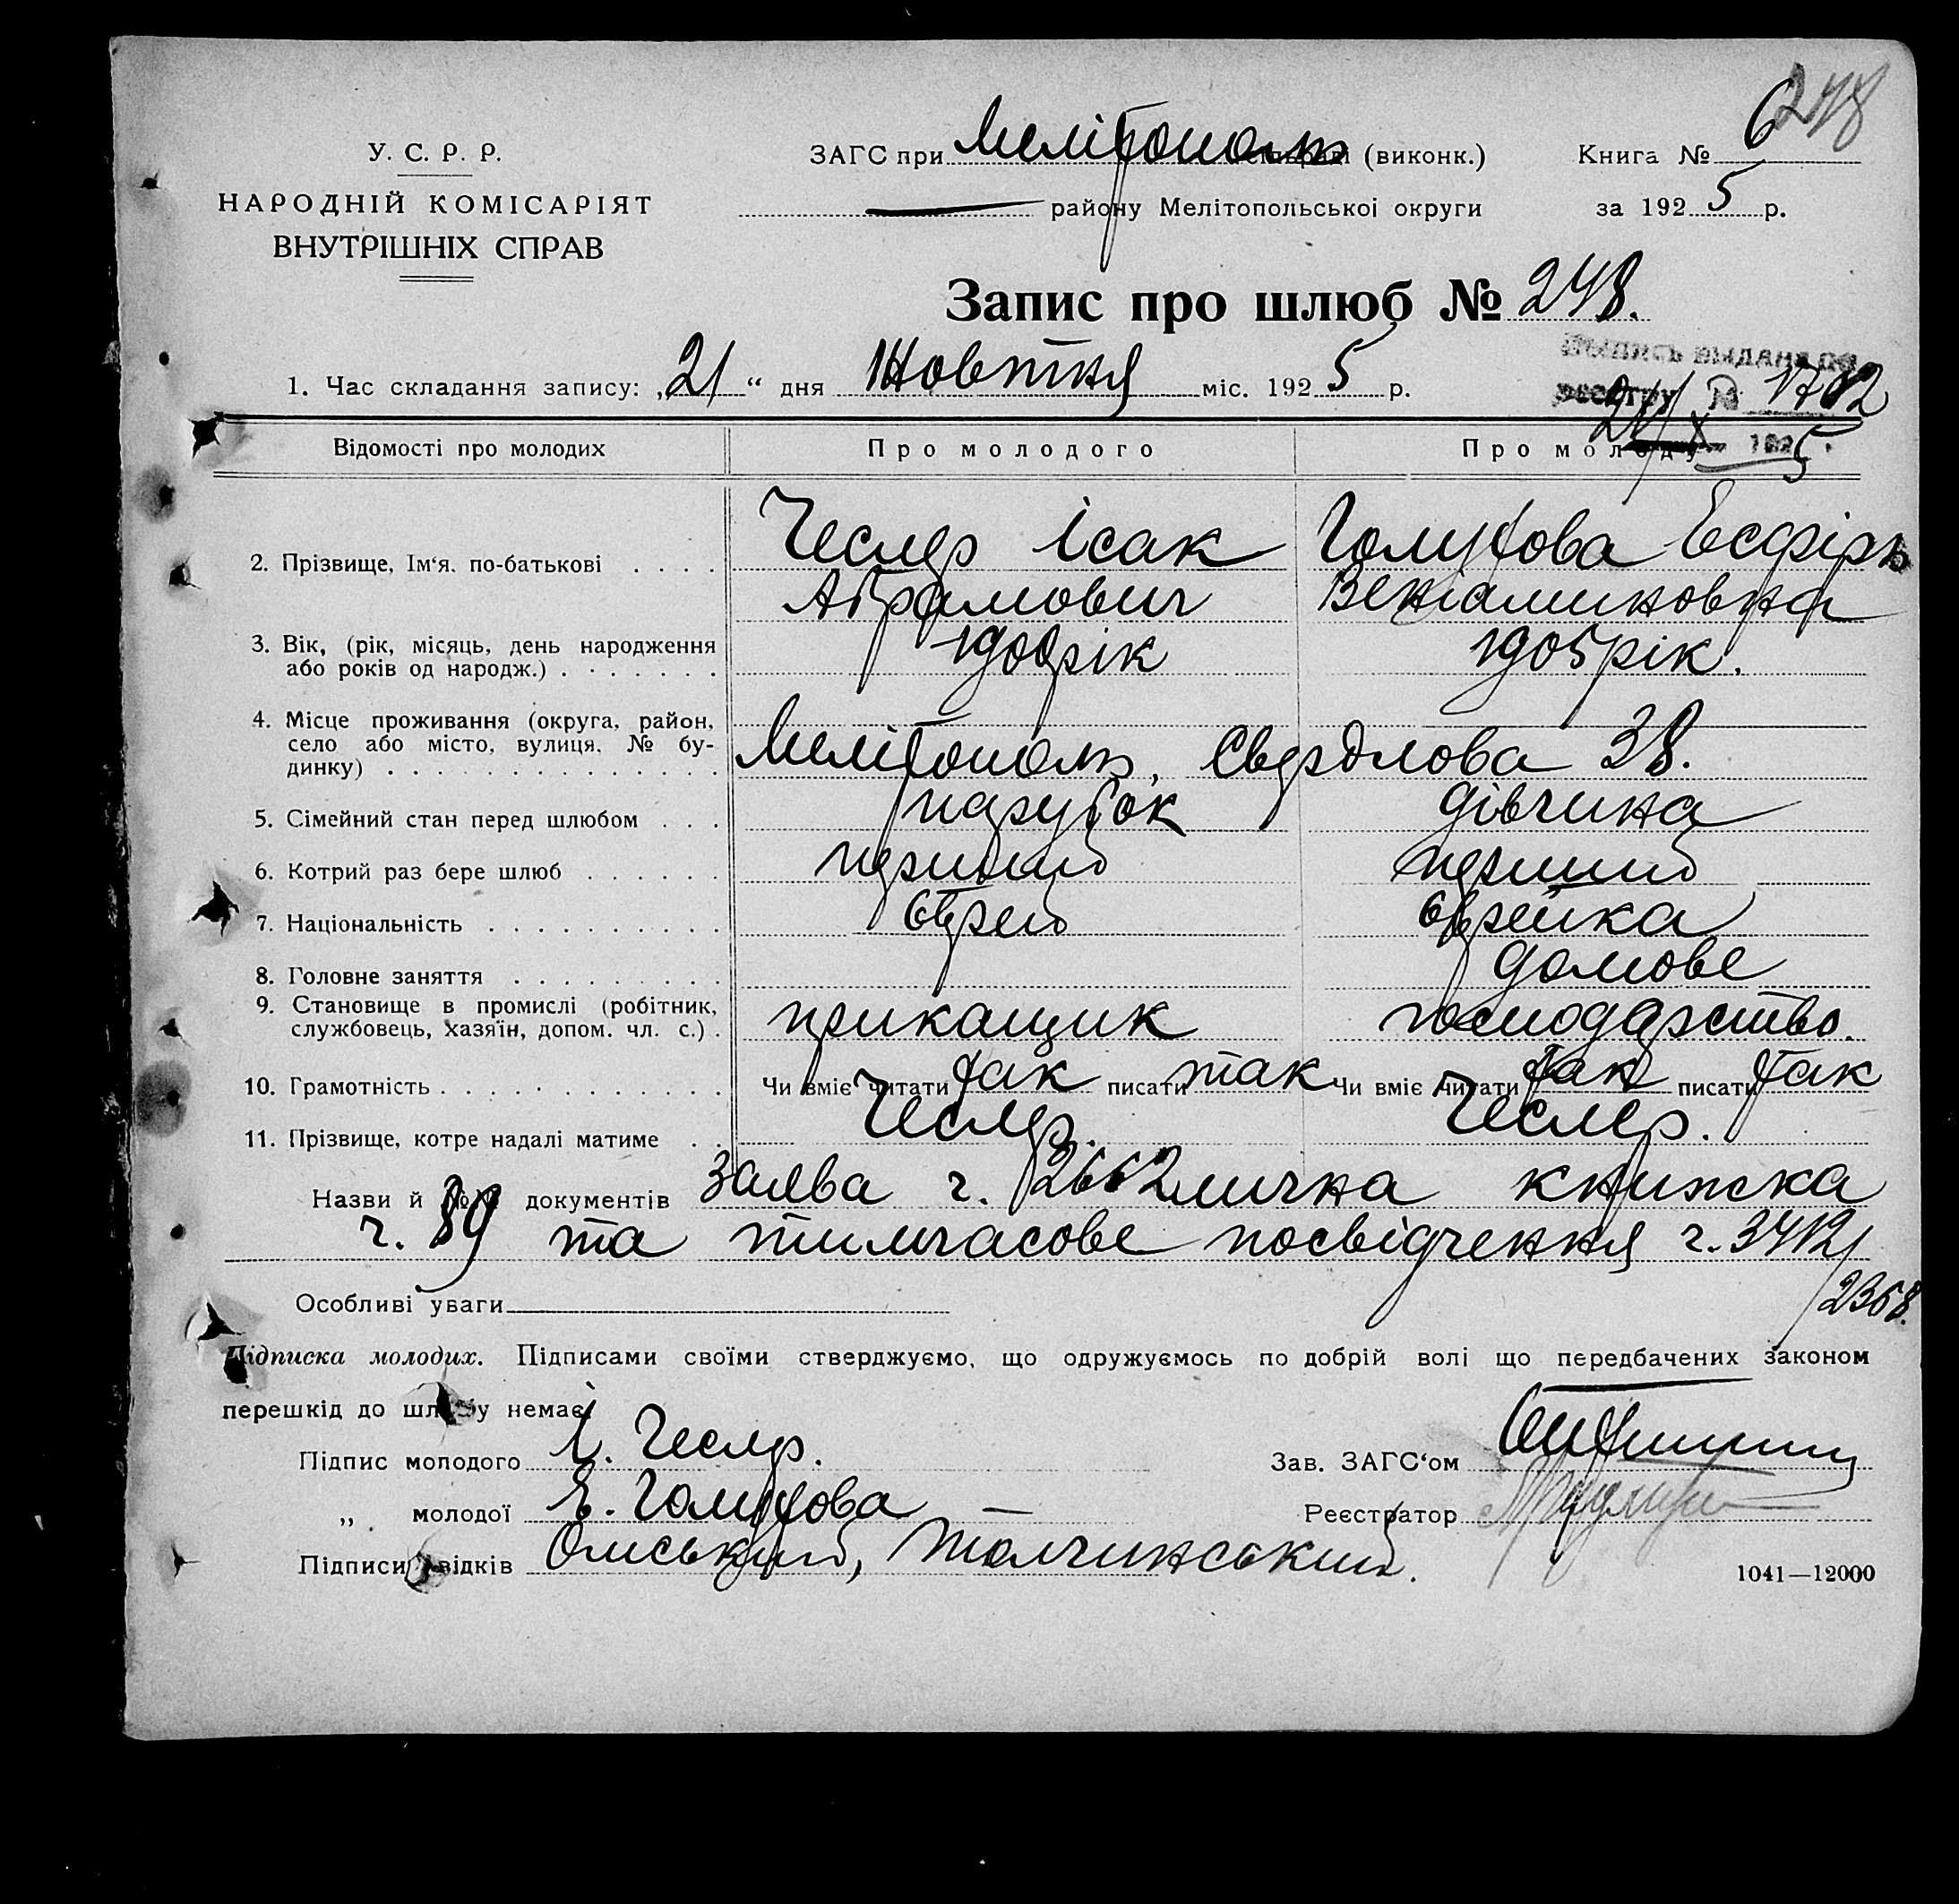 248
У. С. Р. Р.
ЗАГС при Мелітополь (виконк.) Книга № 6
НАРОДНІЙ КОМІСАРІЯТ
району Мелітопольської округи за 1925 р.
ВНУТРІШНІХ СПРАВ
Запис про шлюб № 248.
1. Час складання запису: „21“ дня Жовтня міс. 1925 р.
реєстру № 1702
21/X 1925
Відомості про молодих Про молодого Про молоду
2. Прізвище, Ім‘я, по-батькові Чеслер Ісак Голубова Есфірь
Абрамович Веніаминовна
3. Вік, (рік, місяць, день народження
або років од народж.) 1900 рік 1905 рік.
4. Місце проживання (округа, район,
село або місто, вулиця, № бу-
динку) Мелітополь, Свердлова 38.
5. Сімейний стан перед шлюбом парубок дівчина
6. Котрий раз бере шлюб перший перший
7. Національність єврей єврейка
8. Головне заняття домове
9. Становище в промислі (робітник,
службовець, хазяїн, допом. чл. с.) прикащик господарство.
10. Грамотність Чи вміє читати так писати так Чи вміє читати так писати так
11. Прізвище, котре надалі матиме Чеслер. Чеслер.
Назви й № документів Заява ч. 2662 лична книжка
ч. 89 та тимчасове посвідчення ч. 3412/
/2368.
Особливі уваги
Підписка молодих. Підписами своїми стверджуємо, що одружуємось по добрій волі що передбачених законом
перешкід до шлюбу немає.
Підпис молодого І. Чеслер. Зав. ЗАГС‘ом
„ молодої Е. Голубова Реєстратор
Підписи свідків Омський, Толчинський.
1041—12000